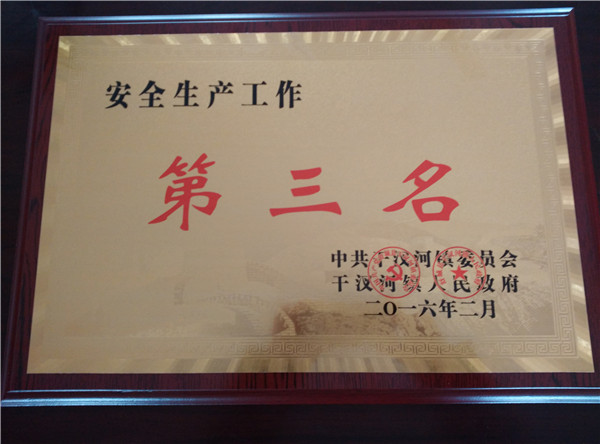 安全生产工作
第三名
中共干汊河镇委员会
干汊河镇人民政府
二〇一六年二月